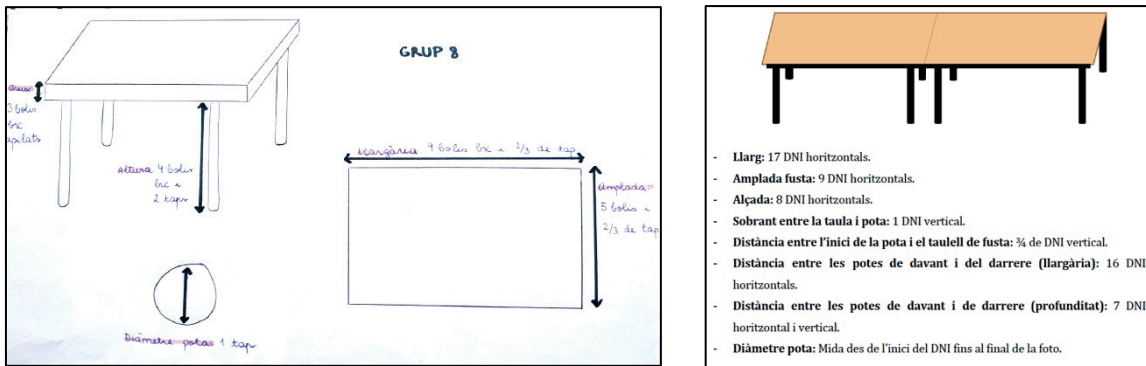 GRUP 8
3 bolis
bic
apilats
Altura 4 bolis
bic i
2 taps
Llargària 9 bolis bic i 2/3 de tap
Amplada=
5 bolis i
2/3 de tap
Diàmetre pota= 1 tap
- Llarg: 17 DNI horitzontals.
- Amplada fusta: 9 DNI horitzontals.
- Alçada: 8 DNI horitzontals.
- Sobrant entre la taula i pota: 1 DNI vertical.
- Distància entre l'inici de la pota i el taulell de fusta: ¾ de DNI vertical.
- Distància entre les potes de davant i del darrere (llargària): 16 DNI
horitzontals.
- Distància entre les potes de davant i de darrere (profunditat): 7 DNI
horitzontal i vertical.
- Diàmetre pota: Mida des de l'inici del DNI fins al final de la foto.